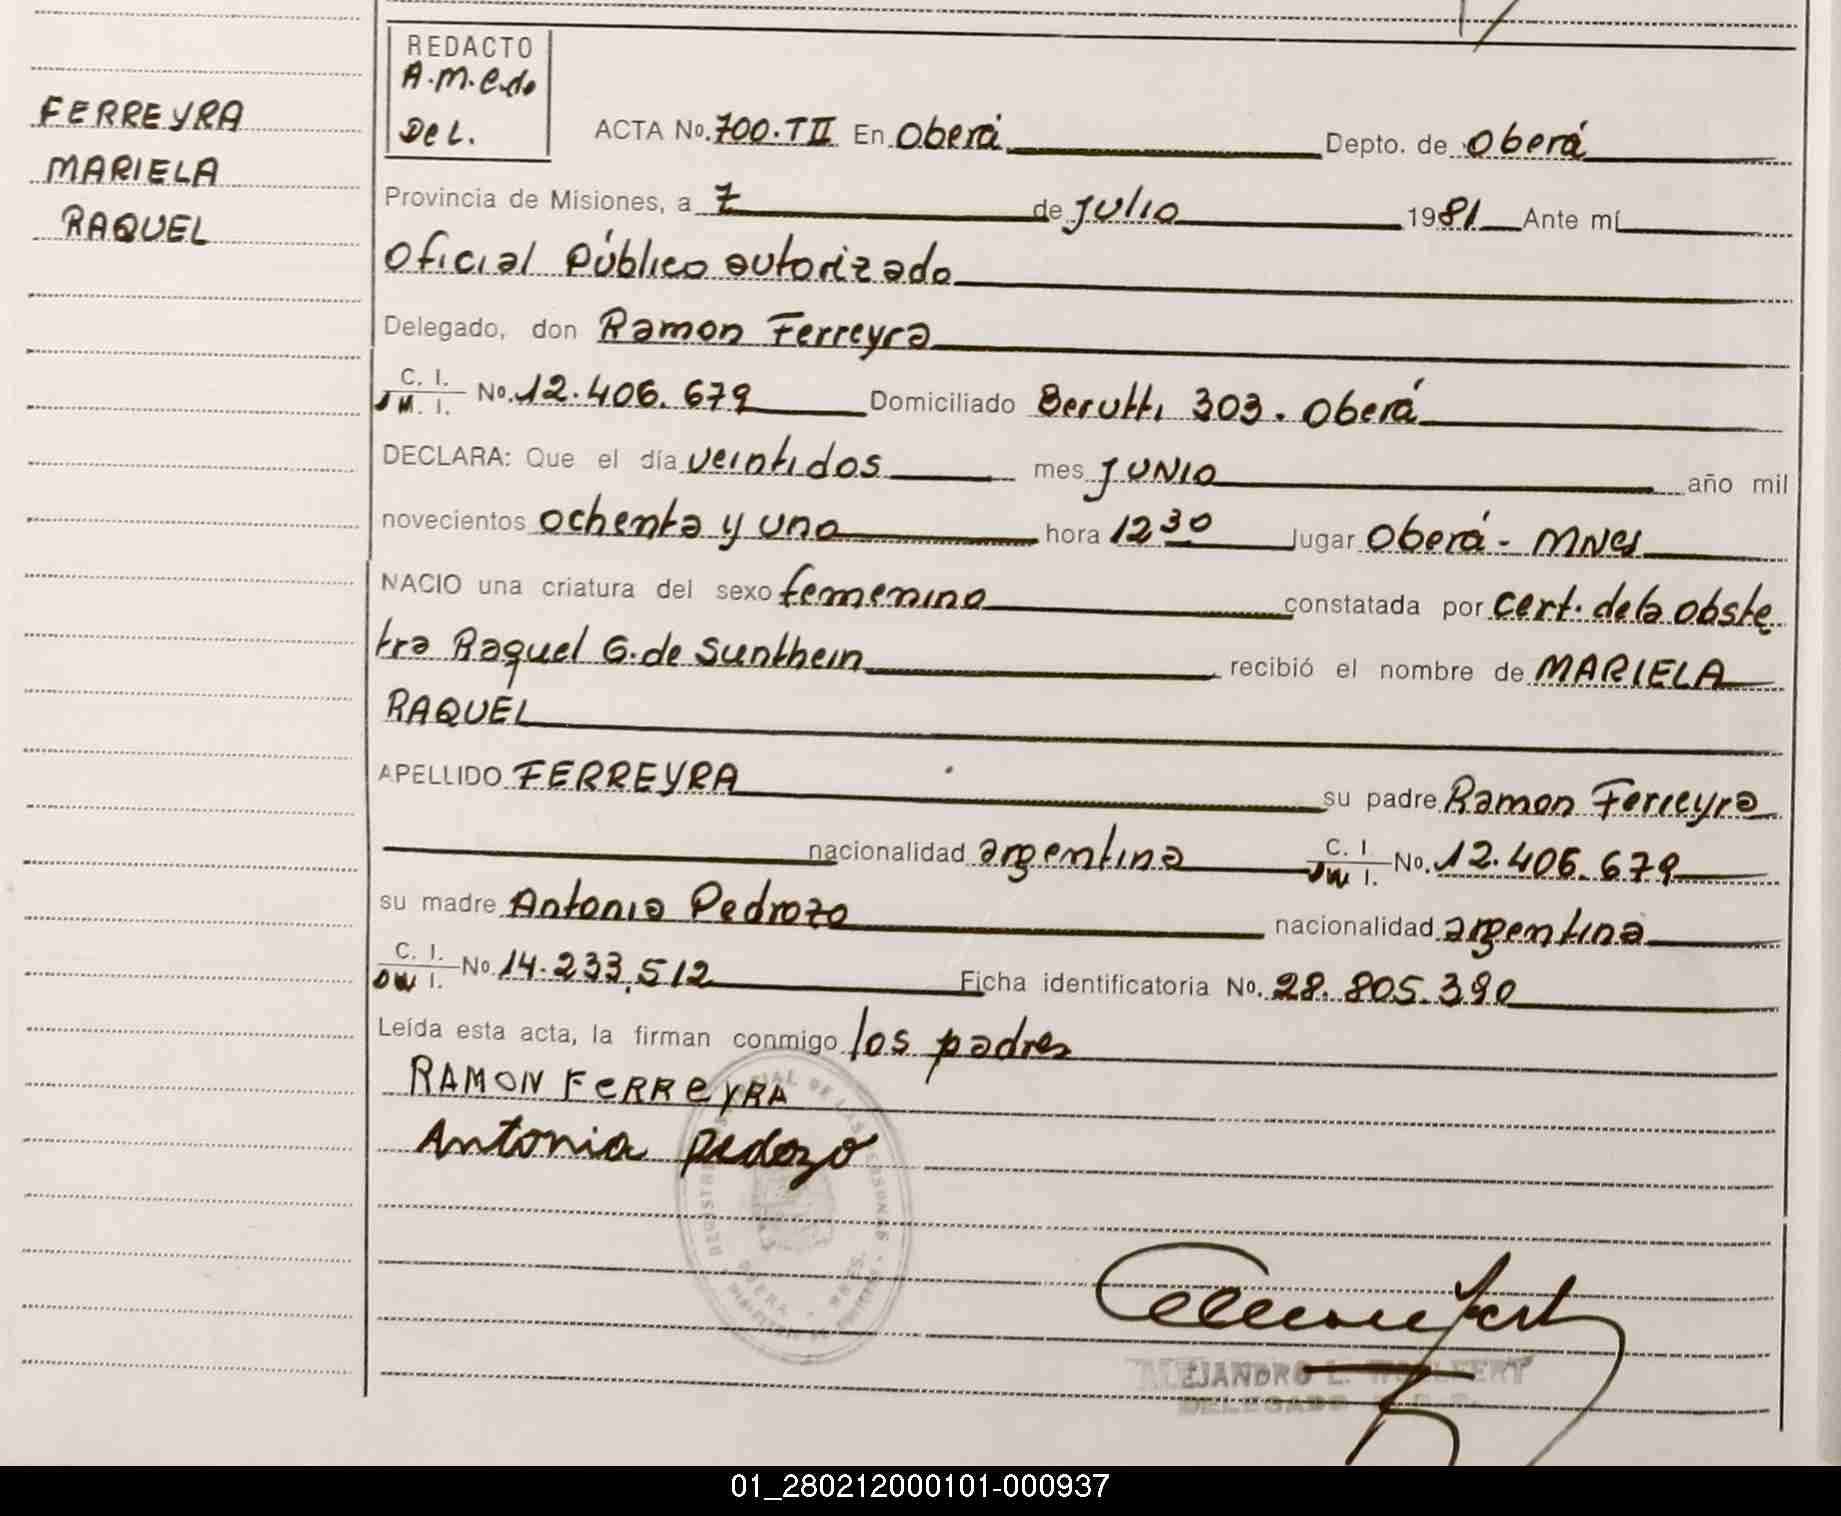 FERREYRA
MARIELA
RAQUEL
REDACTO
A.M.C.do
DEL.
ACTA No. 700.TII En Oberá Depto. de Oberá
Provincia de Misiones, a 7 de julio 1981 Ante mí
Oficial Público autorizado
Delegado, don Ramon Ferreyra
C. I. M. I. No. 12.406.679 Domiciliado Berutti 303. Oberá
DECLARA: Que el día veintidos mes JUNIO año mil
novecientos ochenta y uno hora 12 30 lugar Oberá - MNes
NACIO una criatura del sexo femenino constatada por cert. de la obste
tra Raquel G. de Sunthein recibió el nombre de MARIELA
RAQUEL
APELLIDO FERREYRA su padre Ramon Ferreyra
nacionalidad argentina C. I. I. No. 12.406.679
su madre Antonia Pedrozo nacionalidad argentina
C. I. I. No. 14.233.512 Ficha identificatoria No. 28.805.390
Leída esta acta, la firman conmigo los padres
RAMON FeRReyRA
Antonia Pedozo
ALEJANDRO L.
DELEGADO
01_280212000101-000937